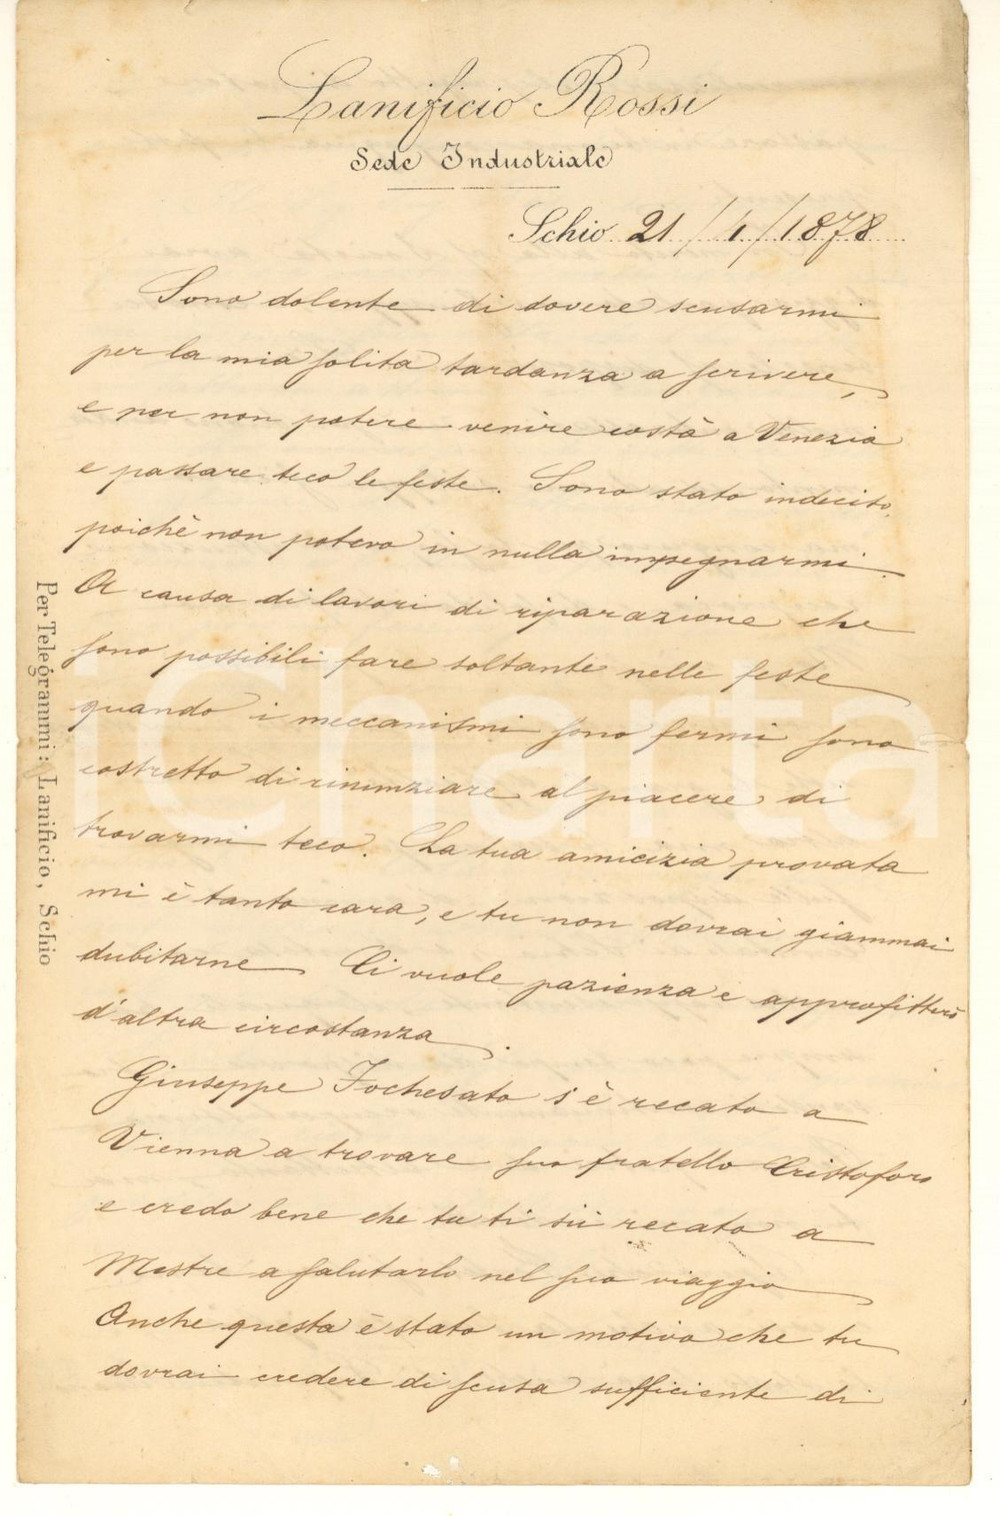 Lanificio Rossi
Sede Industriale
Schio 21/4/1878
Sono dolente di dovere scusarmi
per la mia solita tardanza a scrivere,
e per non potere venire costà a Venezia
e passare teco le feste. Sono stato indeciso,
poichè non potevo in nulla impegnarmi.
A causa di lavori di riparazione che
sono possibili fare soltanto nelle feste
quando i meccanismi sono fermi sono
costretto di rinunziare al piacere di
trovarmi teco. La tua amicizia provata
mi è tanto cara, e tu non dovrai giammai
dubitarne Ci vuole pazienza e approfitterò
d'altra circostanza.
Giuseppe Fochesato s'è recato a
Vienna a trovare suo fratello Cristoforo
e credo bene che tu ti sii recato a
Mestre a salutarlo nel suo viaggio
Anche questa è stato un motivo che tu
dovrai credere di scusa sufficiente di
Per Telegrammi: Lanificio, Schio
iCharta